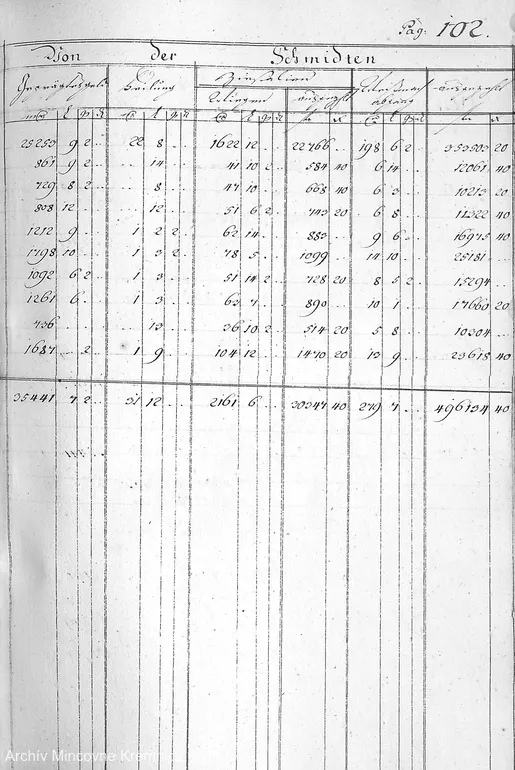 Pag: 102.
Von der Schmidten
25253 9 2 .. 22 8 .. 1622 12 .. 22766 .. 198 6 2 .. 353503 20
861 9 2 .. 14 .. 41 10 2 .. 584 40 6 14 .. 12061 40
729 8 2 .. 8 .. 47 10 .. 668 40 6 3 .. 10213 20
808 12 .. 12 .. 51 6 2 .. 743 20 6 8 .. 11322 40
1212 9 .. 1 2 2 62 14 .. 883 .. 9 6 .. 16975 40
1798 10 .. 1 3 2 78 5 .. 1099 .. 14 10 .. 25181 ..
1092 6 2 .. 1 3 .. 51 14 2 .. 728 20 8 5 2 .. 15294 ..
1261 6 .. 1 3 .. 63 7 .. 890 .. 10 1 .. 17660 20
736 .. 13 .. 36 10 2 .. 514 20 5 8 .. 10304 ..
1687 .. 2 .. 1 9 .. 104 12 .. 1470 20 13 9 .. 23618 40
35441 7 2 .. 31 12 .. 2161 6 .. 30347 40 279 7 .. 496134 40
Archív Mincovne Kremnica